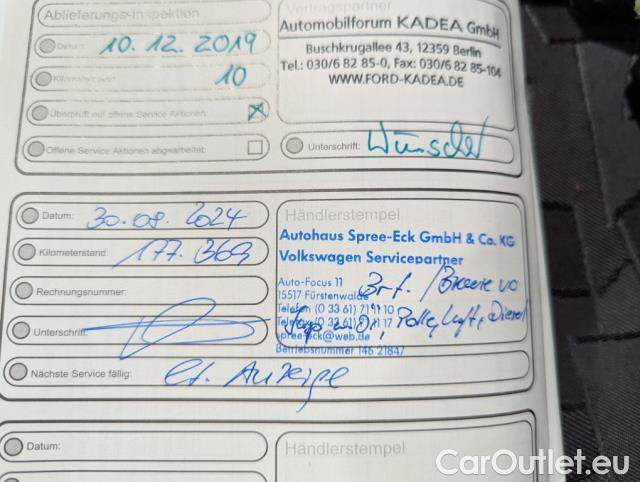 Ablieferungs-Inspektion
Vertragspartner
Automobilforum KADEA GmbH
Buschkrugallee 43, 12359 Berlin
Tel.: 030/6 82 85-0, Fax: 030/6 82 85-104
WWW.FORD-KADEA.DE
Datum: 10.12.2019
Kilometerstand: 10
Überprüft auf offene Service Aktionen:
Offene Service Aktionen abgearbeitet:
Unterschrift: Wünscher
Datum: 30.08.2024
Kilometerstand: 177.369
Rechnungsnummer:
Unterschrift:
Nächste Service fällig: lt. Anzeige
Händlerstempel
Autohaus Spree-Eck GmbH & Co. KG
Volkswagen Servicepartner
Auto-Focus 11
15517 Fürstenwalde
Telefon (0 33 61) 71 11 10
spree-eck@web.de
Betriebsnummer 146 21847
Brf. / Bremse vo
Polle, Luft, Diesel
Datum:
Kilometerstand:
Händlerstempel
CarOutlet.eu